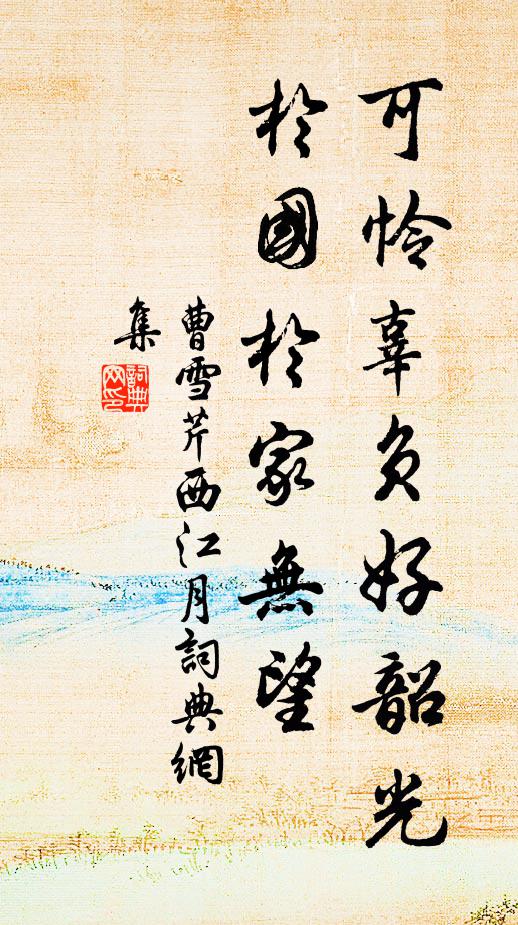 可憐辜負好韶光
於國於家無望
曹雪芹西江月詞典網
集
詞典
网印